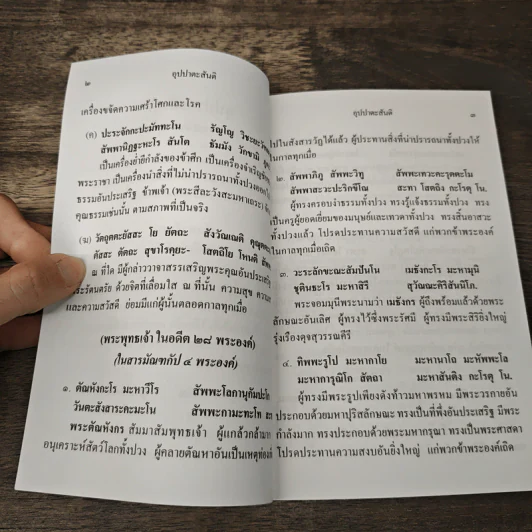 ๒
อุปปาตะสันติ
เครื่องขจัดความเศร้าโศกและโรค
(ค) ปะระจักกะปะมัททะโน รัญโญ วิชะยะวัฑ
สัพพานิฏฐะหะโร สันโต ธัมมัง วักขามิ
เป็นเครื่องย่ำยีกำลังของข้าศึก เป็นเครื่องจำเริญชัย
พระราชา เป็นเครื่องนำสิ่งที่ไม่น่าปรารถนาทั้งปวงออก
ธรรมอันประเสริฐ ข้าพเจ้า (พระสีละวังสะมหาเถระ)
คุณธรรมเช่นนั้น ตามสภาพที่เป็นจริง
(ฆ) วัตถุตตะยัสสะ โย ยัตถะ สังวัณเณติ
ตัสสะ ตัตถะ สุขาโรคฺยะ- โสตถิโย โหนติ
ณ ที่ใด มีผู้กล่าววาจาสรรเสริญพระคุณอันประเสริฐ
ะรัตนตรัย ด้วยจิตที่เลื่อมใส ณ ที่นั้น ความสุข ความ
และความสวัสดี ย่อมมีแก่ผู้นั้นตลอดกาลทุกเมื่อ
(พระพุทธเจ้า ในอดีต ๒๘ พระองค์)
(ในสารมัณฑกัป ๔ พระองค์)
๑. ตัณหังกะโร มะหาวีโร สัพพะโลกานุกัมปะโก
วันตะสังสาระคะมะโน สัพพะกามะทะโท
พระตัณหังกร สัมมาสัมพุทธเจ้า ผู้แกล้วกล้ามาก
อนุเคราะห์สัตว์โลกทั้งปวง ผู้คลายตัณหาอันเป็นเหตุท่อง
อุปปาตะสันติ
๓
ไปในสังสารวัฏได้แล้ว ผู้ประทานสิ่งที่น่าปรารถนาทั้งปวงให้
ในกาลทุกเมื่อ
๒. สัพพาภิภู สัพพะวิทู สัพพะเทวะคะรุตตะโม
สัพพาสะวะปะริกขีโณ สะทา โสตถิง กะโรตุ โน.
ผู้ทรงครอบงำธรรมทั้งปวง ทรงรู้แจ้งธรรมทั้งปวง ทรง
เป็นครูผู้ยอดเยี่ยมของมนุษย์และเทวดาทั้งปวง ทรงสิ้นอาสวะ
ทั้งปวงแล้ว โปรดประทานความสวัสดี แก่พวกข้าพระองค์
ในกาลทุกเมื่อเถิด
๓. วะระลักขะณะสัมปันโน เมธังกะโร มะหามุนิ
ชุตินธะโร มะหาสิรี สุวัณณะคิริสันนิโภ.
พระจอมมุนีพระนามว่า เมธังกร ผู้ถึงพร้อมแล้วด้วยพระ
ลักษณะอันเลิศ ผู้ทรงไว้ซึ่งพระรัศมี ผู้ทรงมีสิริยิ่งใหญ่
รุ่งเรืองดุจสุวรรณคีรี
๔. ทิพพะรูโป มะหากาโย มะหานาโถ มะหัพพะโล
มะหาการุณิโก สัตถา มะหาสันติง กะโรตุ โน.
ผู้ทรงมีพระรูปเพียงดังท้าวมหาพรหม มีพระวรกายอัน
ประกอบด้วยมหาปุริสลักษณะ ทรงเป็นที่พึ่งอันประเสริฐ มีพระ
กำลังมาก ทรงประกอบด้วยพระมหากรุณา ทรงเป็นพระศาสดา
โปรดประทานความสงบอันยิ่งใหญ่ แก่พวกข้าพระองค์เถิด